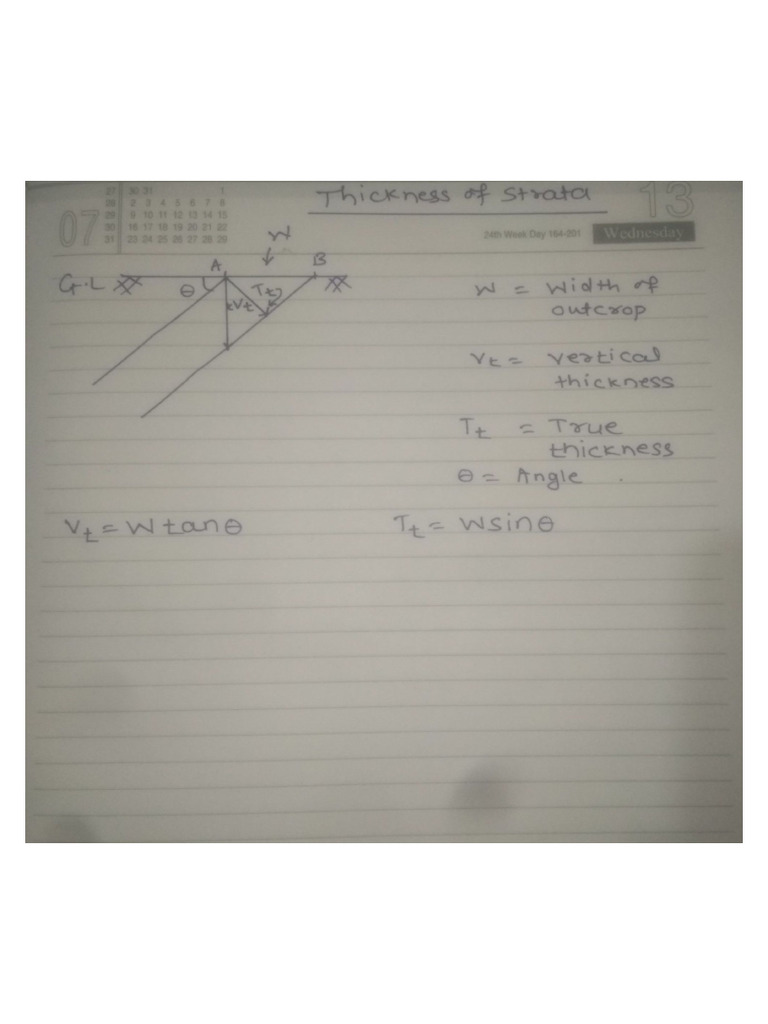 27 30 31 1
28 2 3 4 5 6 7 8
29 9 10 11 12 13 14 15
30 16 17 18 19 20 21 22
31 23 24 25 26 27 28 29
07
Thickness of Strata
13
24th Week Day 164-201 Wednesday
W
A B
G.L θ Vt Tt
W = Width of
outcrop
Vt = vertical
thickness
Tt = True
thickness
θ = Angle .
Vt = W tan θ Tt = W sin θ